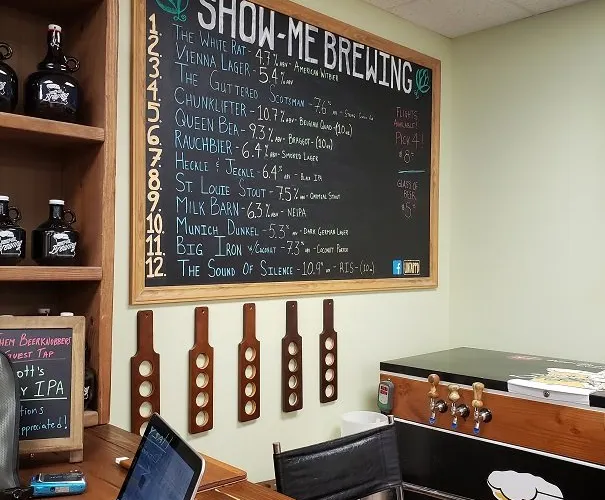 SHOW-ME BREWING
1. THE WHITE RAT - 4.7% ABV - AMERICAN WITBIER
2. VIENNA LAGER - 5.4% ABV
3. THE GUTTERED SCOTSMAN - 7.6%
4. CHUNKLIFTER - 10.7% ABV - BELGIAN QUAD - (10oz)
5. QUEEN BEA - 9.3% ABV - BRAGGOT - (10oz)
6. RAUCHBIER - 6.4% ABV - SMOKED LAGER
7. HECKLE & JECKLE - 6.4% - BLACK IPA
8. ST. LOUIE STOUT - 7.5% - OATMEAL STOUT
9. MILK BARN - 6.3% ABV - NEIPA
10. MUNICH DUNKEL - 5.3% ABV - DARK GERMAN LAGER
11. BIG IRON W/COCONUT - 7.3% - COCONUT PORTER
12. THE SOUND OF SILENCE - 10.9% - RIS - (10oz)
FLIGHTS
AVAILABLE!
PICK 4!
$8
GLASS OF
BEER
$5
f
UNTAPPD
HEM BEERKNOBBERS
GUEST TAP
ott's
IPA
tions
appreciated!